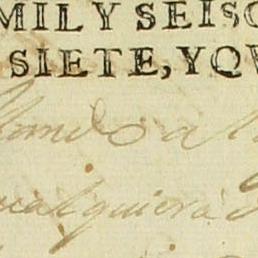 MILY SEISC
SIETE, YQV
ando a l
ualquiera